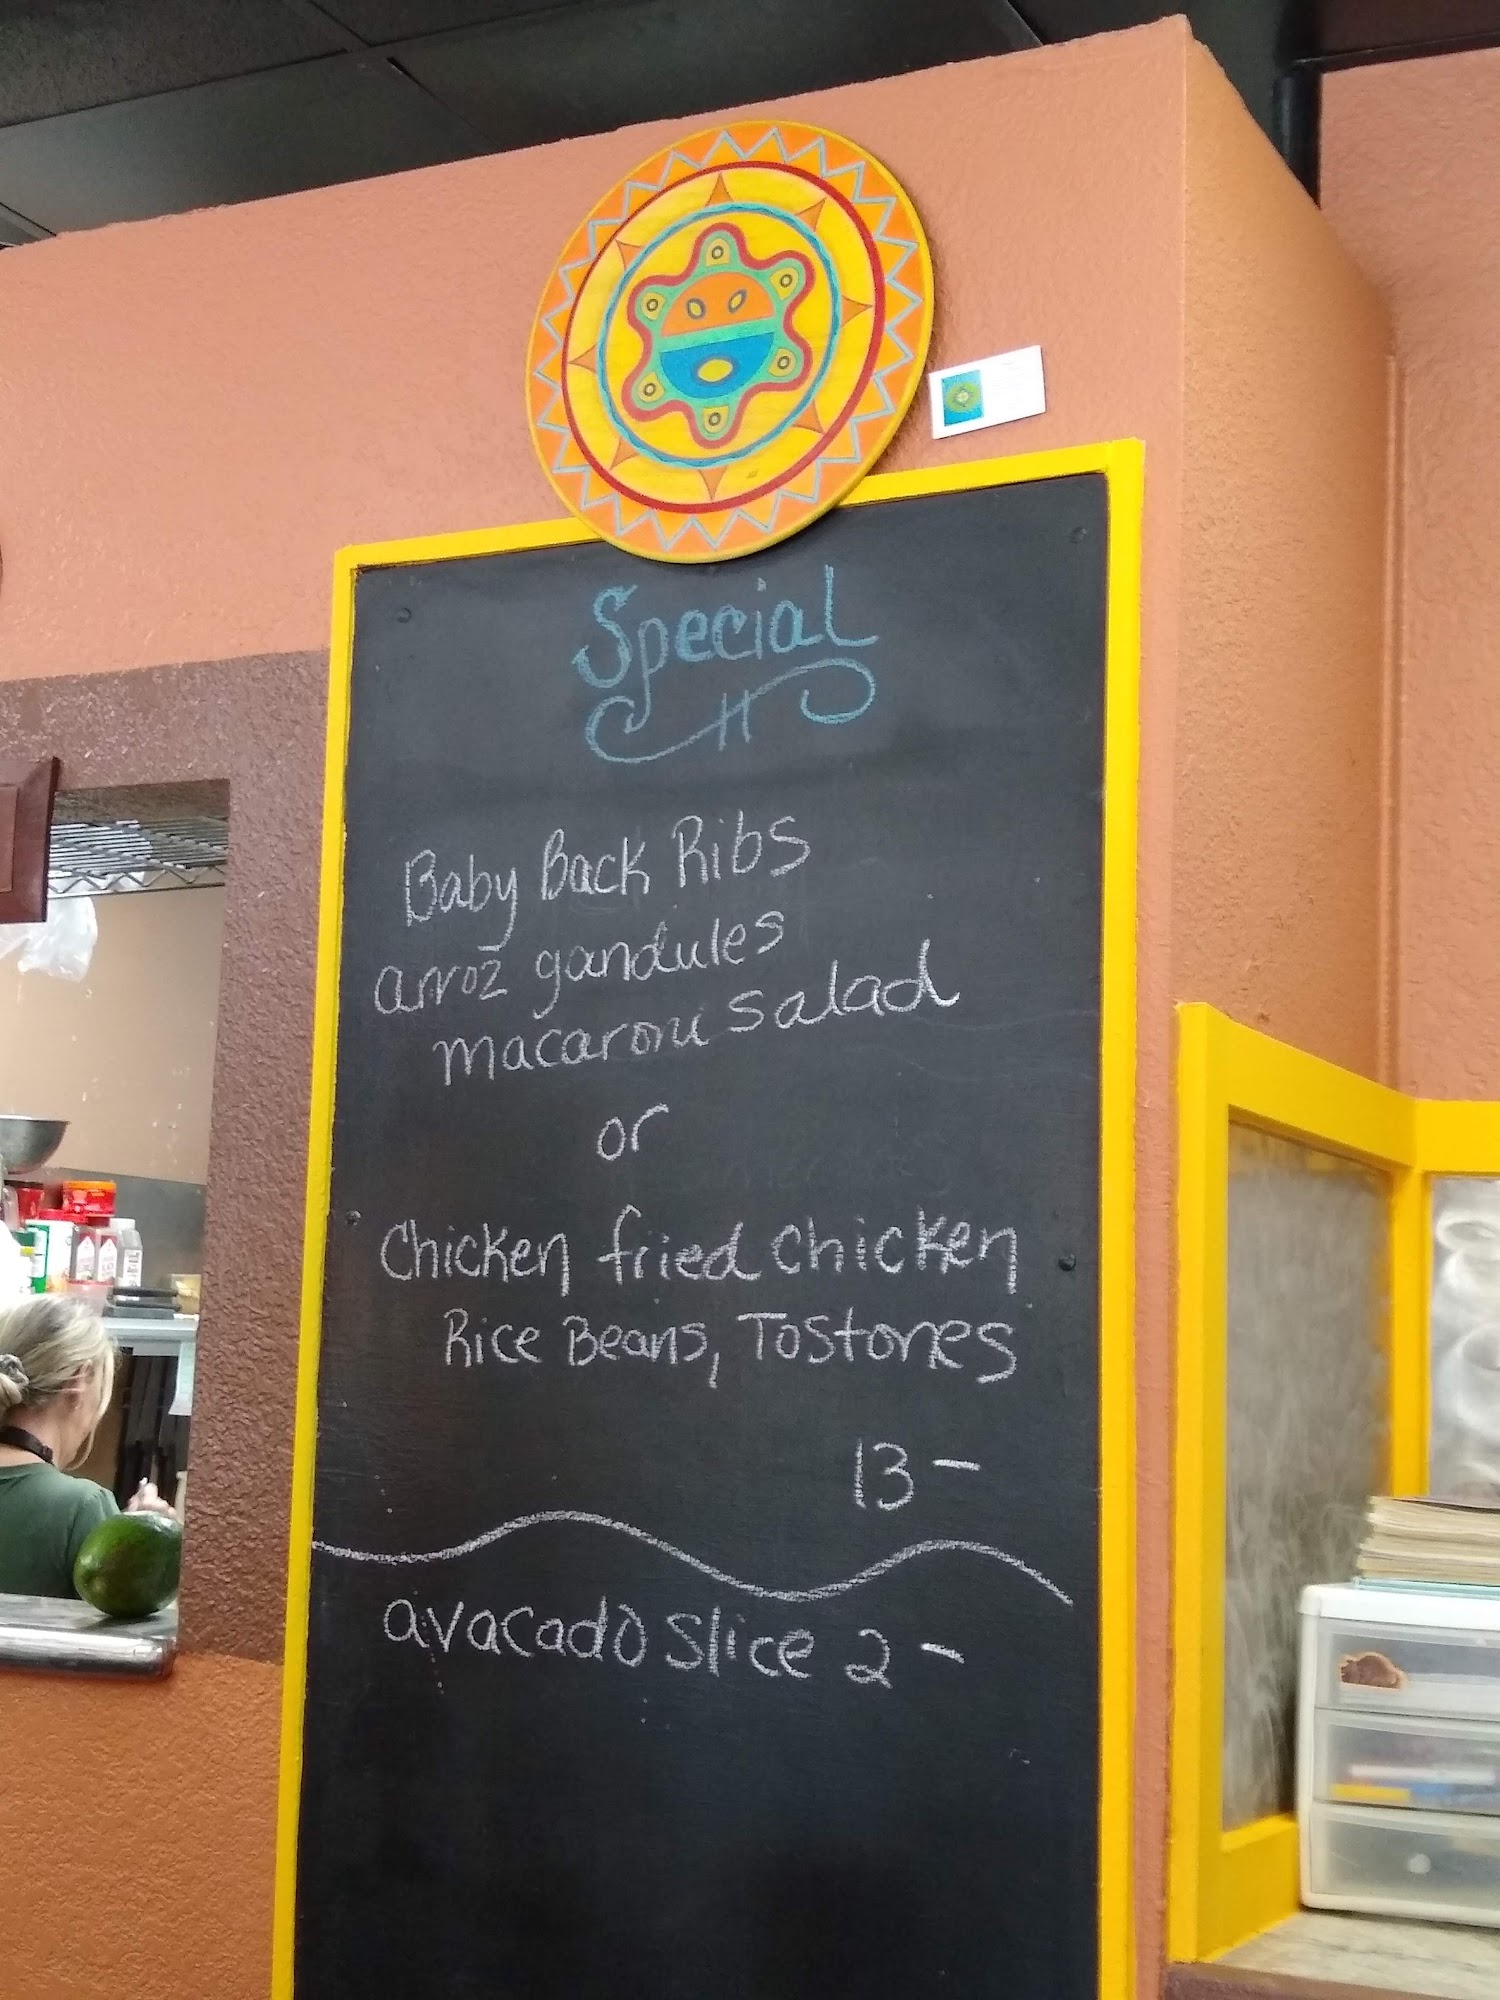 Special
Baby Back Ribs
arroz gandules
macaroni salad
or
Chicken fried chicken
Rice Beans, Tostones
13 -
avacado slice 2 -